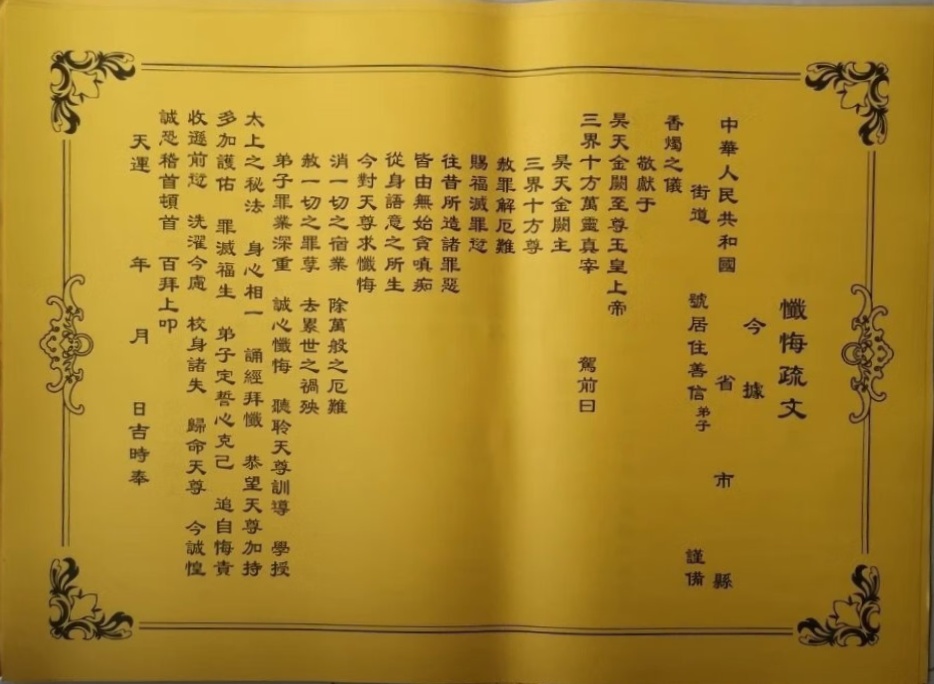 懺悔疏文
今據
中華人民共和國 省 市 縣
街道 號居住善信弟子 謹備
香燭之儀
敬獻于
昊天金闕至尊玉皇上帝
三界十方萬靈真宰 駕前曰
昊天金闕主
三界十方尊
赦罪解厄難
賜福滅罪愆
往昔所造諸罪惡
皆由無始貪嗔痴
從身語意之所生
今對天尊求懺悔
消一切之宿業 除萬般之厄難
赦一切之罪孽 去累世之禍殃
弟子罪業深重 誠心懺悔 聽聆天尊訓導 學授
太上之秘法 身心相一 誦經拜懺 恭望天尊加持
多加護佑 罪滅福生 弟子定誓心克己 追自悔責
收遜前愆 洗濯今處 校身諸失 歸命天尊 今誠惶
誠恐稽首頓首 百拜上叩
天運 年 月 日吉時奉